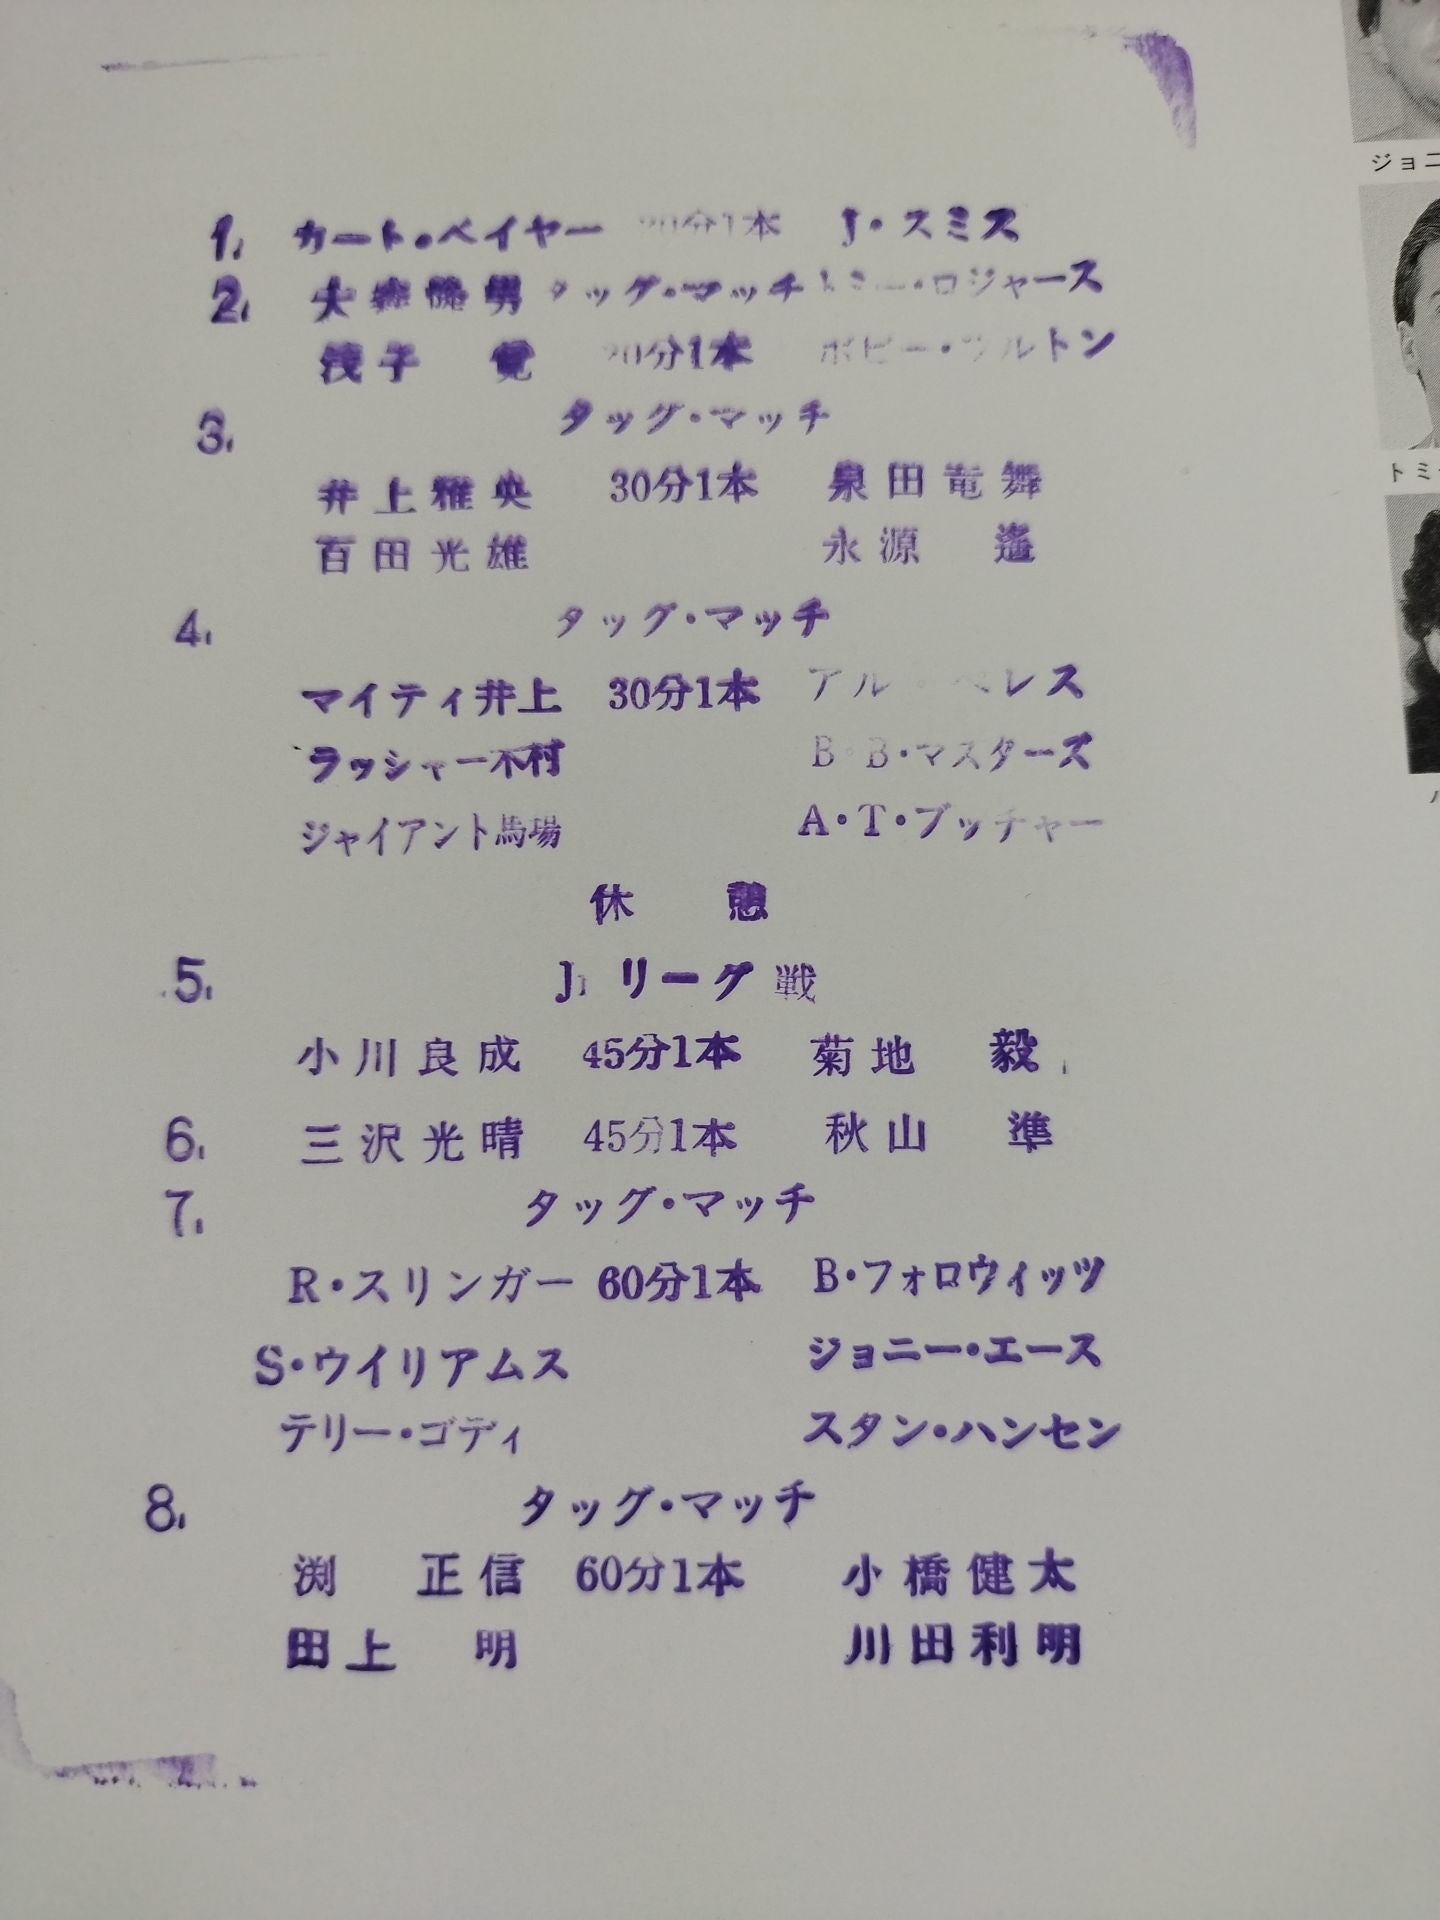 1. カート・ベイヤー 20分1本 J・スミス
2. 大森隆男 タッグ・マッチ トミー・ロジャース
浅子 覚 20分1本 ボビー・フルトン
3. タッグ・マッチ
井上雅央 30分1本 泉田竜舞
百田光雄 永源 遙
4. タッグ・マッチ
マイティ井上 30分1本 アル・ペレス
ラッシャー木村 B・B・マスターズ
ジャイアント馬場 A・T・ブッチャー
休 憩
5. Jr リーグ戦
小川良成 45分1本 菊地 毅
6. 三沢光晴 45分1本 秋山 準
7. タッグ・マッチ
R・スリンガー 60分1本 B・フォロウィッツ
S・ウイリアムス ジョニー・エース
テリー・ゴディ スタン・ハンセン
8. タッグ・マッチ
渕 正信 60分1本 小橋健太
田上 明 川田利明
ジョニ
トミ